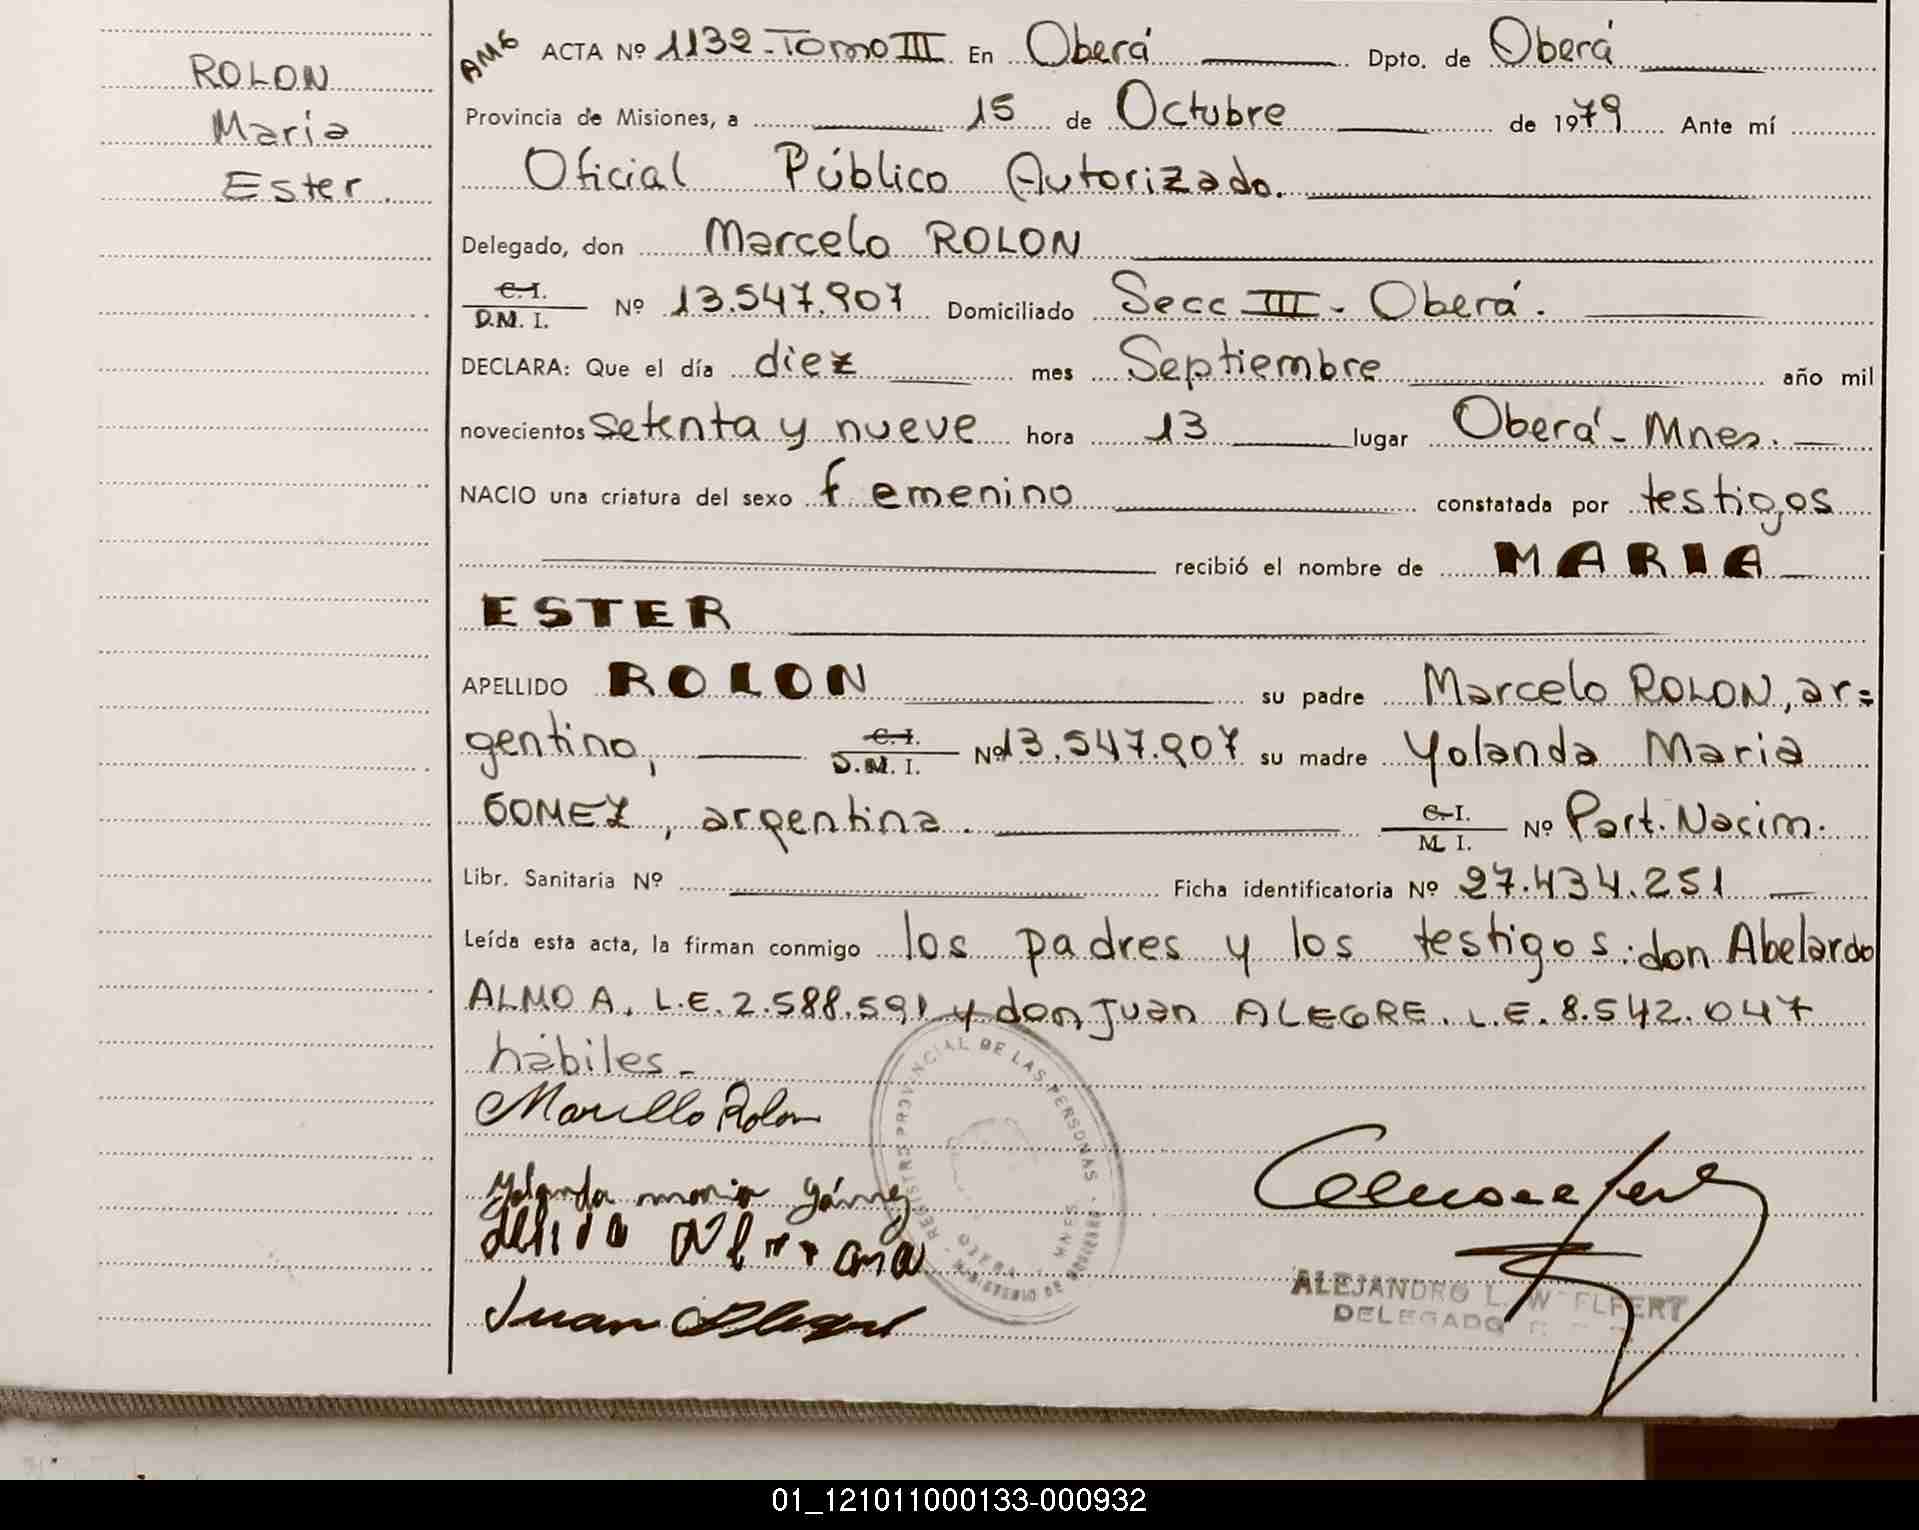 ROLON
Maria
Ester.
AMG ACTA Nº 1132-Tomo III En Oberá Dpto. de Oberá
Provincia de Misiones, a 15 de Octubre de 1979 Ante mí
Oficial Público Autorizado.
Delegado, don Marcelo ROLON
C.I.
D.M. I. Nº 13.547.907 Domiciliado Secc III - Oberá.
DECLARA: Que el día diez mes Septiembre año mil
novecientos setenta y nueve hora 13 lugar Oberá - Mnes.
NACIO una criatura del sexo femenino constatada por testigos
recibió el nombre de MARIA
ESTER
APELLIDO ROLON su padre Marcelo ROLON, ar=
gentino, C.I.
D.M. I. Nº 13.547.907 su madre Yolanda Maria
GOMEZ, argentina. C.I.
M. I. Nº Part. Nacim.
Libr. Sanitaria Nº Ficha identificatoria Nº 27.434.251
Leída esta acta, la firman conmigo los padres y los testigos: don Abelardo
ALMOA, L.E. 2.588.591 y don Juan ALEGRE. L.E. 8.542.047
hábiles -
Marcello Rolon
Yolanda maria Gómez
Juan Alegre
REGISTRO PROVINCIAL DE LAS PERSONAS
OBERA - MNES
MINISTERIO DE GOBIERNO
ALEJANDRO L. WELFERT
DELEGADO
01_121011000133-000932